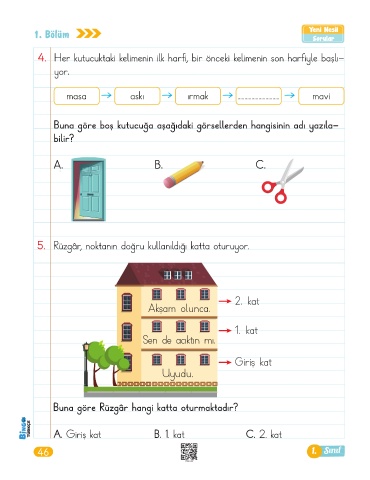 1. Bölüm
Yeni Nesil
Sorular
4. Her kutucuktaki kelimenin ilk harfi, bir önceki kelimenin son harfiyle başlı-
yor.
masa → askı → ırmak → ............ → mavi
Buna göre boş kutucuğa aşağıdaki görsellerden hangisinin adı yazıla-
bilir?
A. B. C.
5. Rüzgâr, noktanın doğru kullanıldığı katta oturuyor.
Akşam olunca. → 2. kat
Sen de acıktın mı. → 1. kat
Uyudu. → Giriş kat
Buna göre Rüzgâr hangi katta oturmaktadır?
A. Giriş kat B. 1. kat C. 2. kat
BİNGO
TÜRKÇE
46
1. Sınıf